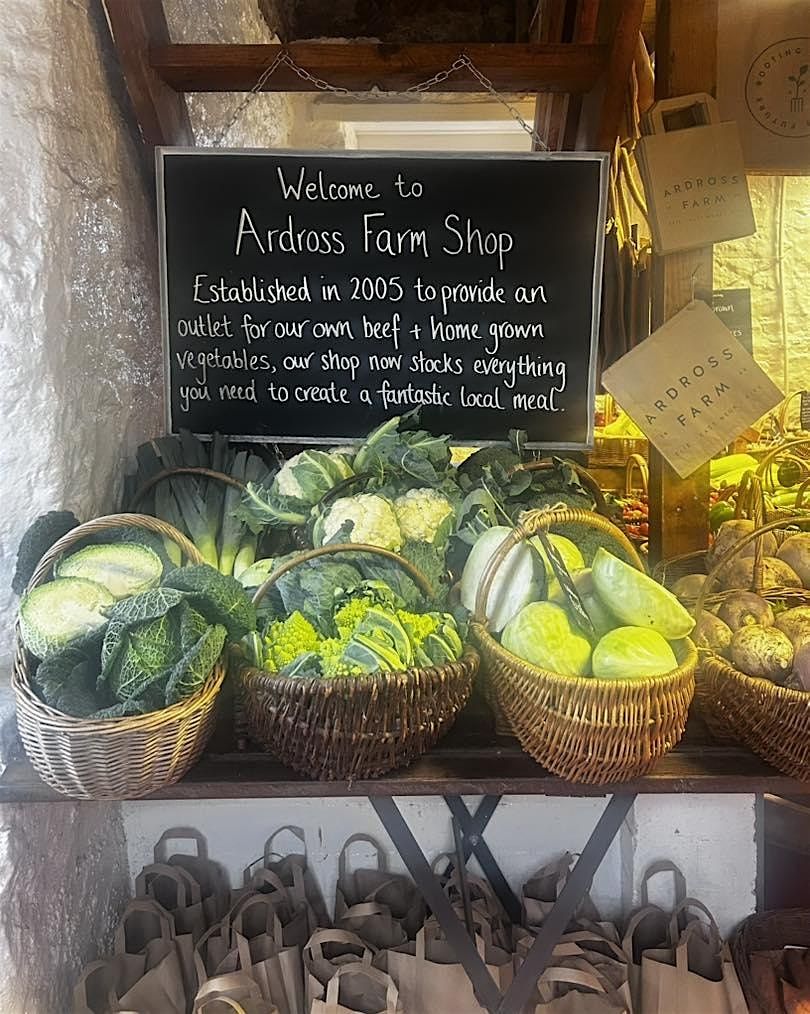 Welcome to
Ardross Farm Shop
Established in 2005 to provide an
outlet for our own beef + home grown
vegetables, our shop now stocks everything
you need to create a fantastic local meal.
ROOTING
FUTURE
ARDROSS
FARM
ARDROSS
FARM